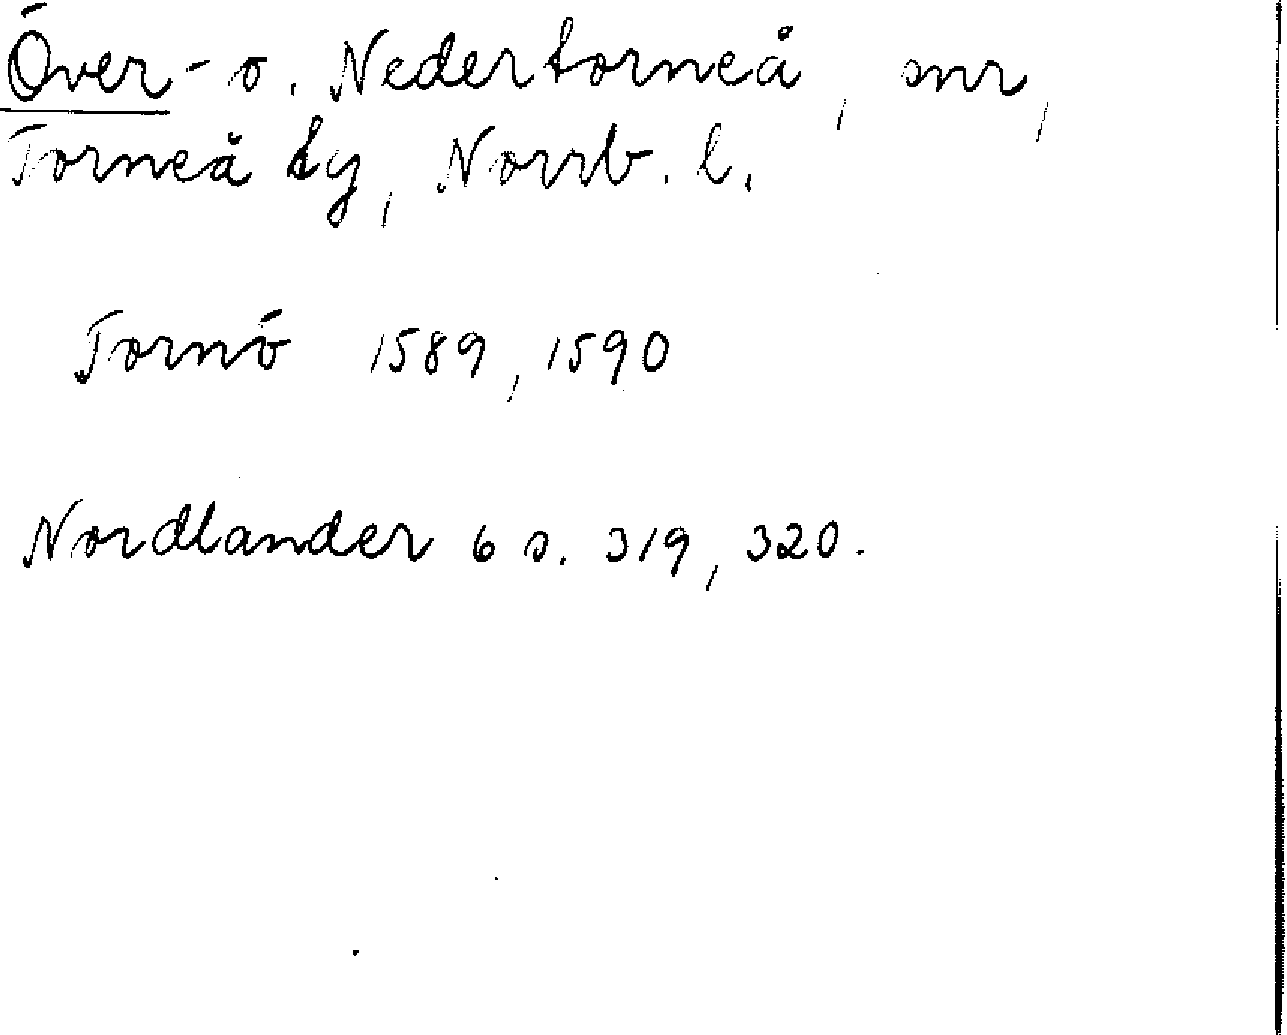 Över- o. Nedertorneå, snr,
Torneå tg, Norrb. l.
Tornö 1589, 1590
Nordlander 6 s. 319, 320.